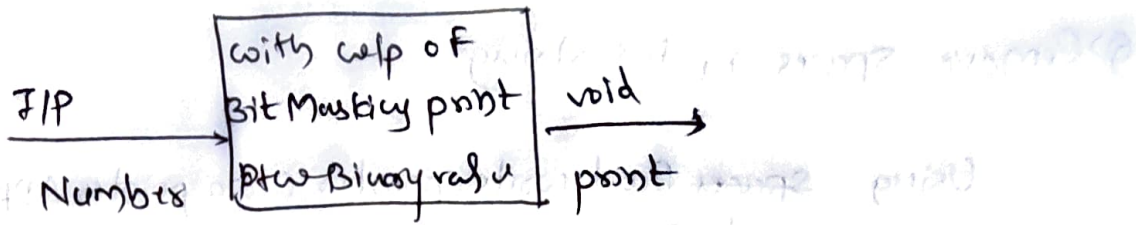 I/P
Number
with welp of
Bit Masking print
Binary value
void
print